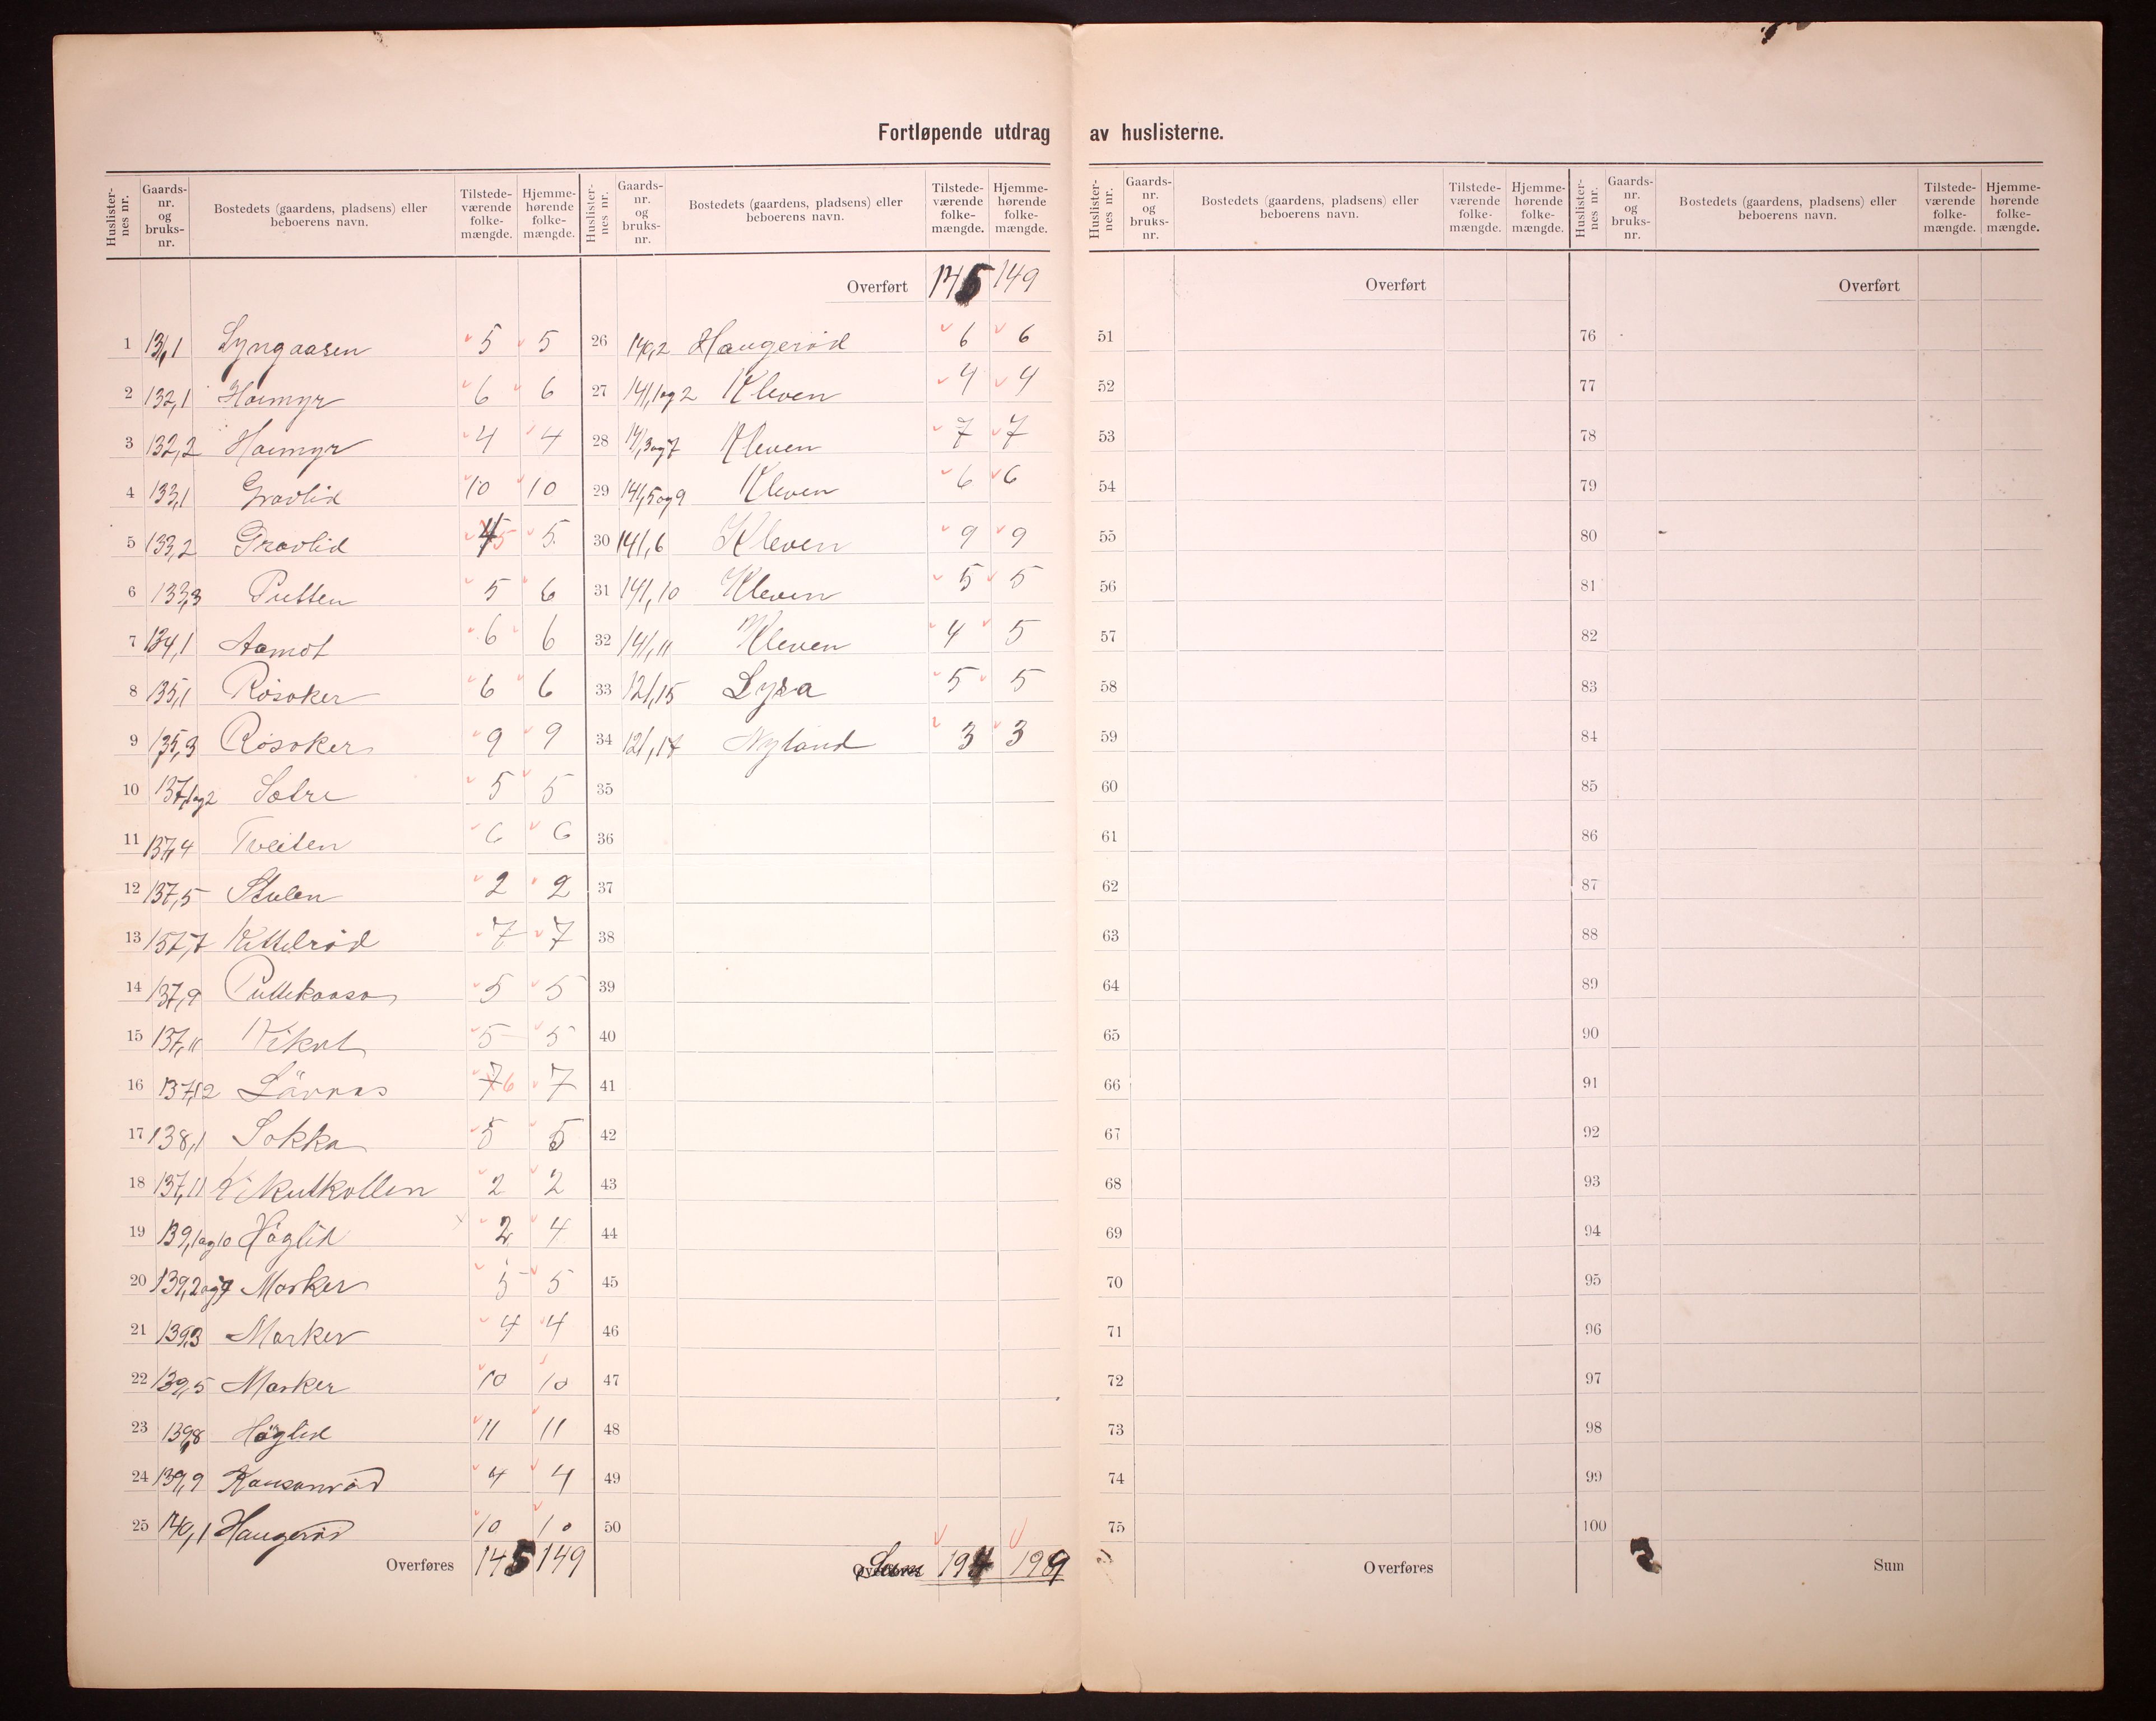 Fortløpende utdrag av huslisterne.
Huslisternes nr. Gaardsnr. og bruksnr. Bostedets (gaardens, pladsens) eller beboerens navn. Tilstedeværende folkemængde. Hjemmehørende folkemængde.
1 131,1 Lyngaasen 5 5
2 132,1 Hoimyr 6 6
3 132,2 Hoimyr 4 4
4 133,1 Gravlid 10 10
5 133,2 Gravlid 4 5 5
6 133,3 Putten 5 6
7 134,1 Aamot 6 6
8 135,1 Røsaker 6 6
9 135,3 Røsaker 9 9
10 137,1og2 Solre 5 5
11 137,4 Tveiten 6 6
12 137,5 Stulen 2 2
13 137,7 Kittelrød 7 7
14 137,9 Puttekaasa 5 5
15 137,11 Vikut 5 5
16 137,12 7 6 7
17 138,1 Sokka 5 5
18 137,11 Vikutkollen 2 2
19 139,1og10 Høglid 2 4
20 139,2og7 Marker 5 5
21 139,3 Marker 4 4
22 139,5 Marker 10 10
23 139,8 Høglid 11 11
24 139,9 4 4
25 140,1 Haugerød 10 10
Overføres 145 149
Huslisternes nr. Gaardsnr. og bruksnr. Bostedets (gaardens, pladsens) eller beboerens navn. Tilstedeværende folkemængde. Hjemmehørende folkemængde.
Overført 145 149
26 140,2 Haugerød 6 6
27 141,1og2 Kleven 4 4
28 141,3og7 Kleven 7 7
29 141,5og9 Kleven 6 6
30 141,6 Kleven 9 9
31 141,10 Kleven 5 5
32 141,11 Kleven 4 5
33 121,15 Lysa 5 5
34 121,17 Nyland 3 3
35
36
37
38
39
40
41
42
43
44
45
46
47
48
49
50
Sum 194 199
Huslisternes nr. Gaardsnr. og bruksnr. Bostedets (gaardens, pladsens) eller beboerens navn. Tilstedeværende folkemængde. Hjemmehørende folkemængde.
Overført
51
52
53
54
55
56
57
58
59
60
61
62
63
64
65
66
67
68
69
70
71
72
73
74
75
Overføres
Huslisternes nr. Gaardsnr. og bruksnr. Bostedets (gaardens, pladsens) eller beboerens navn. Tilstedeværende folkemængde. Hjemmehørende folkemængde.
Overført
76
77
78
79
80
81
82
83
84
85
86
87
88
89
90
91
92
93
94
95
96
97
98
99
100
Sum